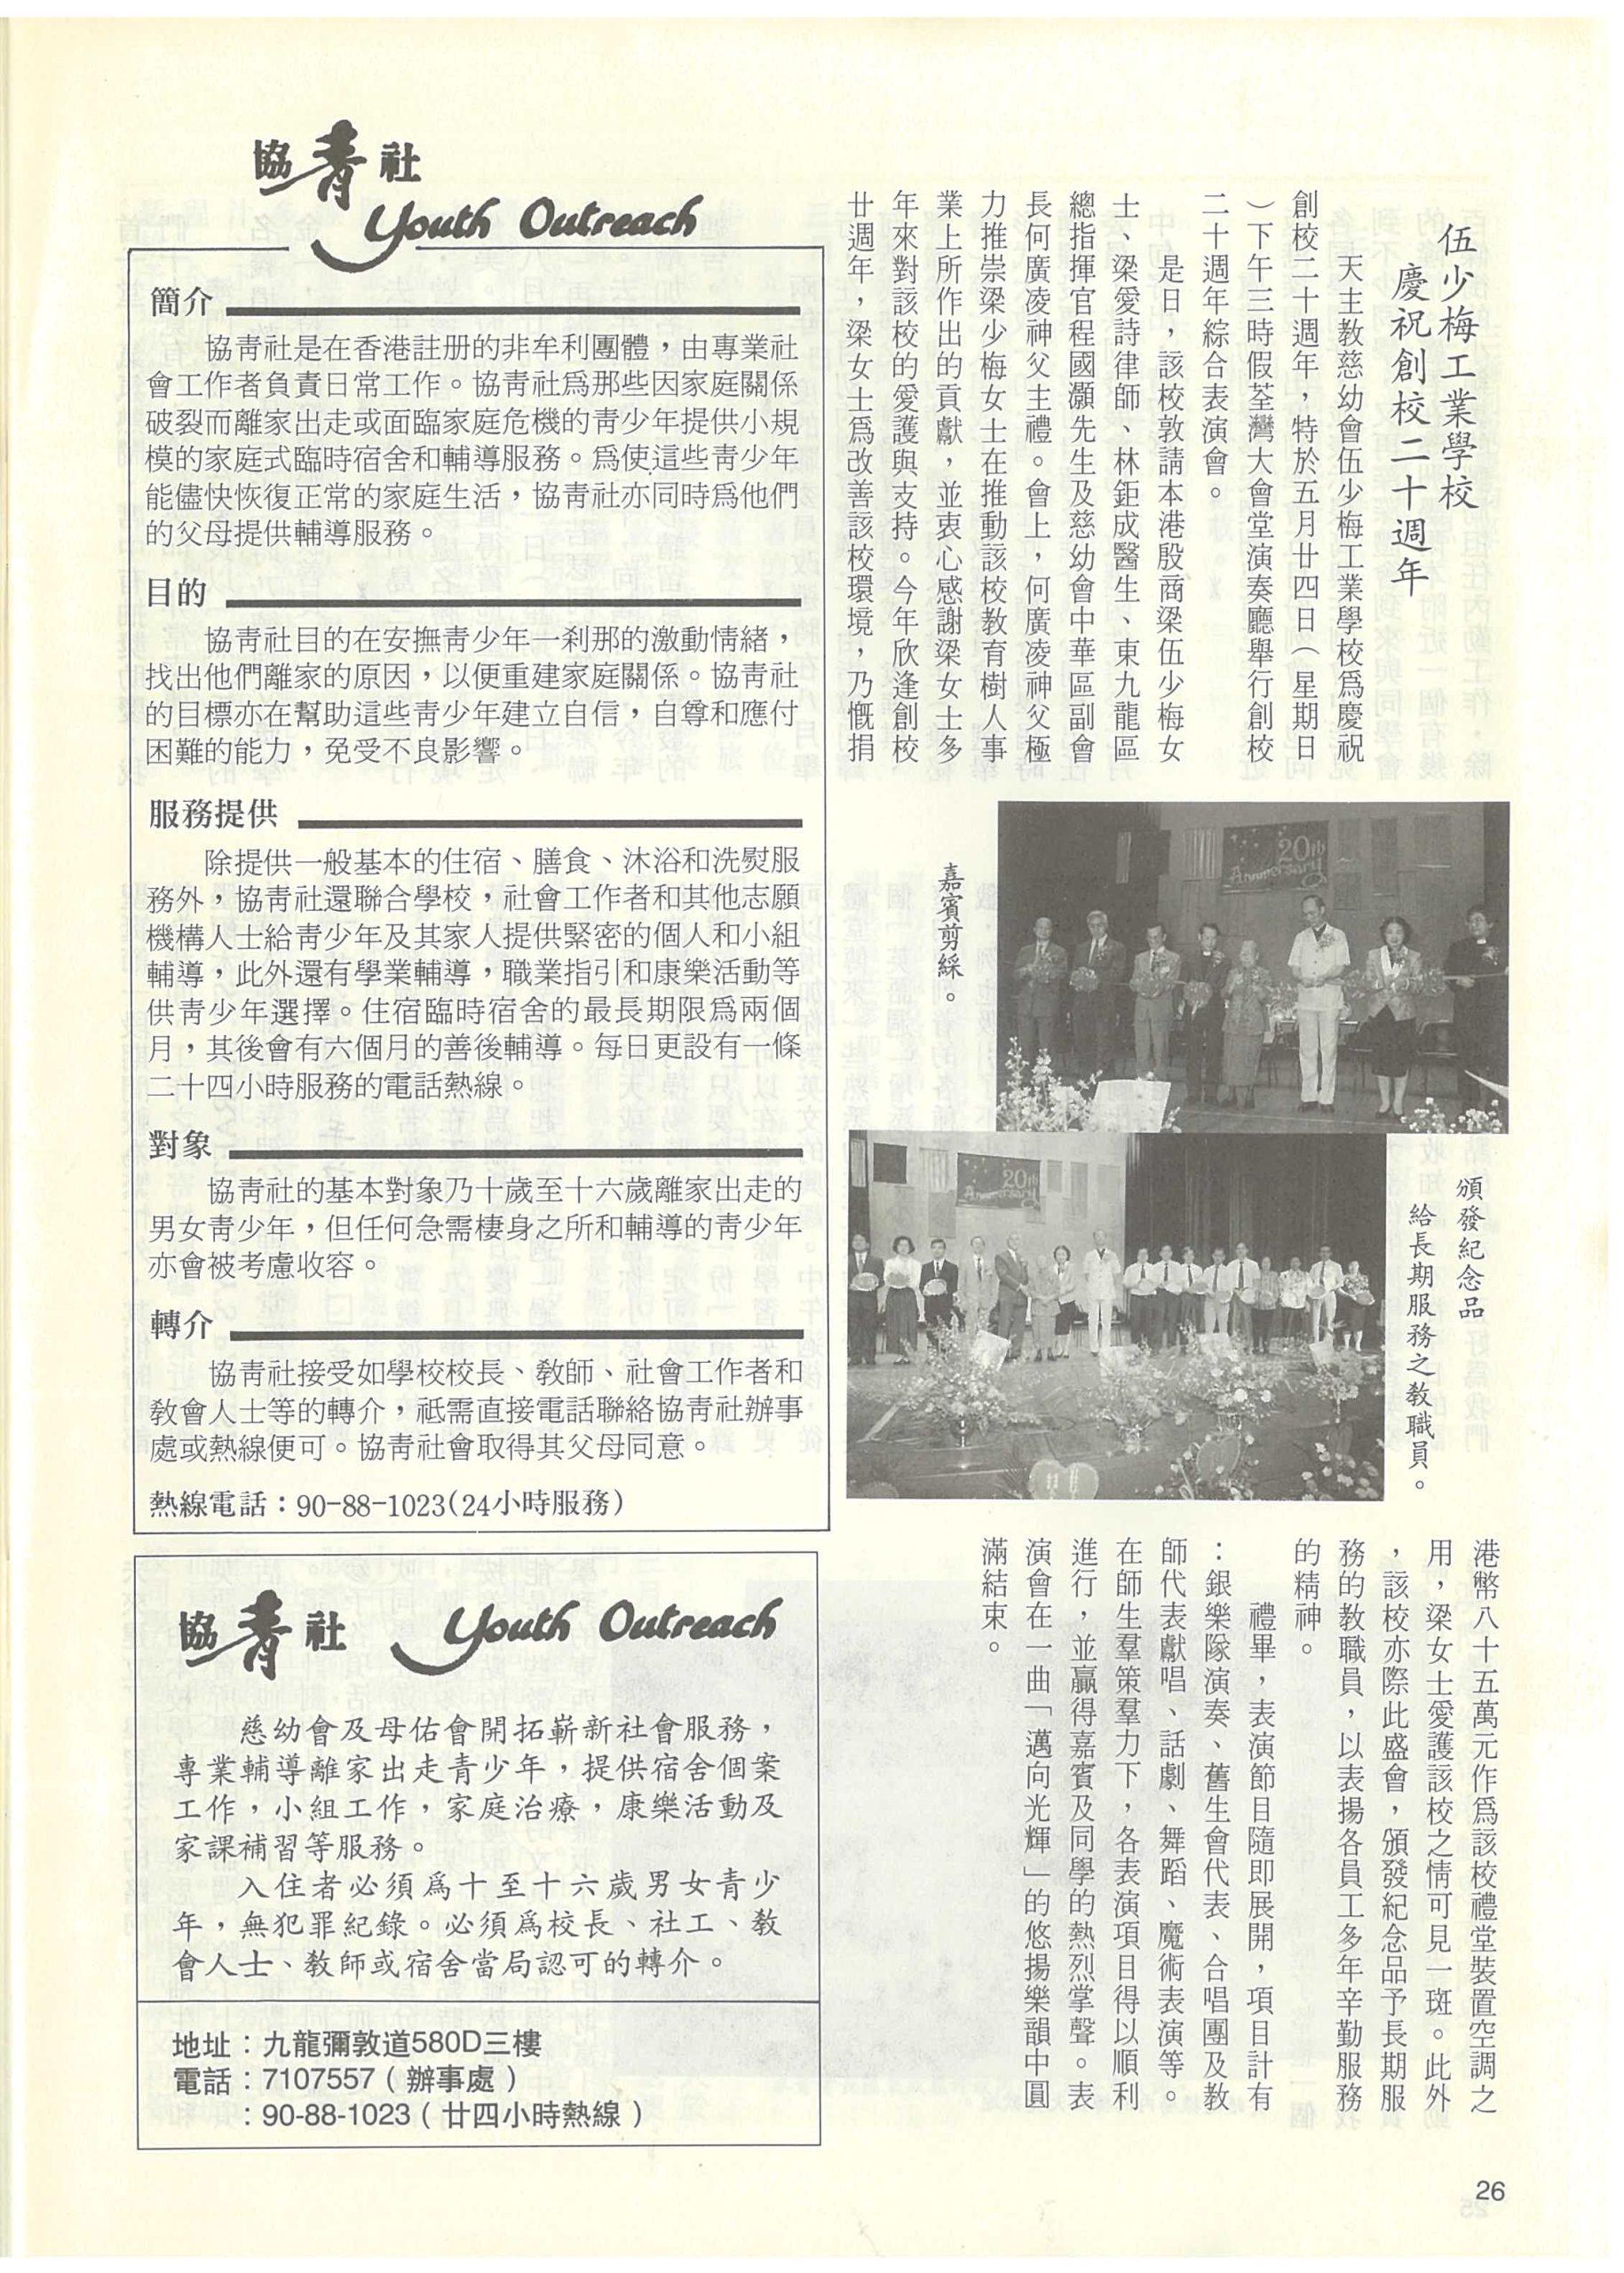 伍少梅工業學校
慶祝創校二十週年
天主教慈幼會伍少梅工業學校爲慶祝
創校二十週年，特於五月廿四日（星期日
）下午三時假荃灣大會堂演奏廳舉行創校
二十週年綜合表演會。
是日，該校敦請本港殷商梁伍少梅女
士、梁愛詩律師、林鉅成醫生、東九龍區
總指揮官程國灝先生及慈幼會中華區副會
長何廣凌神父主禮。會上，何廣凌神父極
力推崇梁少梅女士在推動該校教育樹人事
業上所作出的貢獻，並衷心感謝梁女士多
年來對該校的愛護與支持。今年欣逢創校
廿週年，梁女士爲改善該校環境，乃慨捐
20th
Anniversary
嘉賓剪綵。
20th
Anniversary
頒發紀念品
給長期服務之教職員。
港幣八十五萬元作爲該校禮堂裝置空調之
用，梁女士愛護該校之情可見一斑。此外
，該校亦際此盛會，頒發紀念品予長期服
務的教職員，以表揚各員工多年辛勤服務
的精神。
禮畢，表演節目隨即展開，項目計有
：銀樂隊演奏、舊生會代表、合唱團及教
師代表獻唱、話劇、舞蹈、魔術表演等。
在師生羣策羣力下，各表演項目得以順利
進行，並贏得嘉賓及同學的熱烈掌聲。表
演會在一曲「邁向光輝」的悠揚樂韻中圓
滿結束。
協青社
Youth Outreach
簡介
協靑社是在香港註册的非牟利團體，由專業社
會工作者負責日常工作。協靑社爲那些因家庭關係
破裂而離家出走或面臨家庭危機的靑少年提供小規
模的家庭式臨時宿舍和輔導服務。爲使這些靑少年
能儘快恢復正常的家庭生活，協靑社亦同時爲他們
的父母提供輔導服務。
目的
協靑社目的在安撫靑少年一刹那的激動情緒，
找出他們離家的原因，以便重建家庭關係。協靑社
的目標亦在幫助這些靑少年建立自信，自尊和應付
困難的能力，免受不良影響。
服務提供
除提供一般基本的住宿、膳食、沐浴和洗熨服
務外，協靑社還聯合學校，社會工作者和其他志願
機構人士給靑少年及其家人提供緊密的個人和小組
輔導，此外還有學業輔導，職業指引和康樂活動等
供靑少年選擇。住宿臨時宿舍的最長期限爲兩個
月，其後會有六個月的善後輔導。每日更設有一條
二十四小時服務的電話熱線。
對象
協靑社的基本對象乃十歲至十六歲離家出走的
男女靑少年，但任何急需棲身之所和輔導的靑少年
亦會被考慮收容。
轉介
協靑社接受如學校校長、教師、社會工作者和
教會人士等的轉介，祇需直接電話聯絡協靑社辦事
處或熱線便可。協靑社會取得其父母同意。
熱線電話：90-88-1023(24小時服務)
協青社 Youth Outreach
慈幼會及母佑會開拓嶄新社會服務，
專業輔導離家出走青少年，提供宿舍個案
工作，小組工作，家庭治療，康樂活動及
家課補習等服務。
入住者必須爲十至十六歲男女青少
年，無犯罪紀錄。必須爲校長、社工、教
會人士、教師或宿舍當局認可的轉介。
地址：九龍彌敦道580D三樓
電話：7107557（辦事處）
：90-88-1023（廿四小時熱線）
26